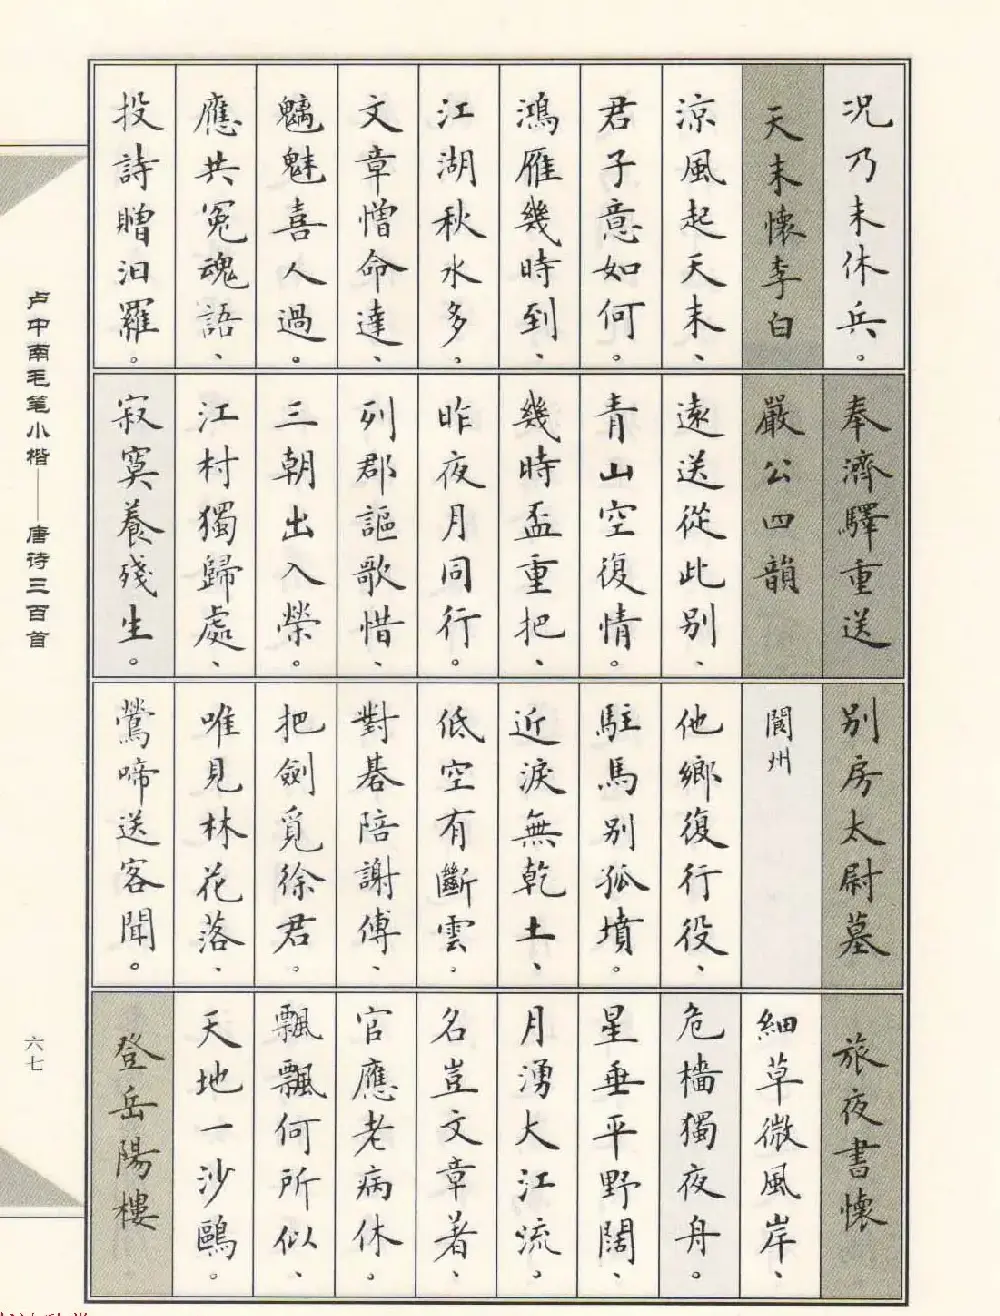 况乃未休兵。
天末懷李白
涼風起天末、
君子意如何。
鴻雁幾時到、
江湖秋水多。
文章憎命達、
魑魅喜人過。
應共冤魂語、
投詩贈汨羅。
奉濟驛重送
嚴公四韻
遠送從此别、
青山空復情。
幾時盃重把、
昨夜月同行。
列郡謳歌惜、
三朝出入榮。
江村獨歸處、
寂寞養殘生。
别房太尉墓
閬州
他鄉復行役、
駐馬别孤墳。
近淚無乾土、
低空有斷雲。
對棊陪謝傅、
把劍覓徐君。
唯見林花落、
鶯啼送客聞。
旅夜書懷
細草微風岸、
危檣獨夜舟。
星垂平野闊、
月湧大江流。
名豈文章著、
官應老病休。
飄飄何所似、
天地一沙鷗。
登岳陽樓
卢中南毛笔小楷——唐诗三百首
六七